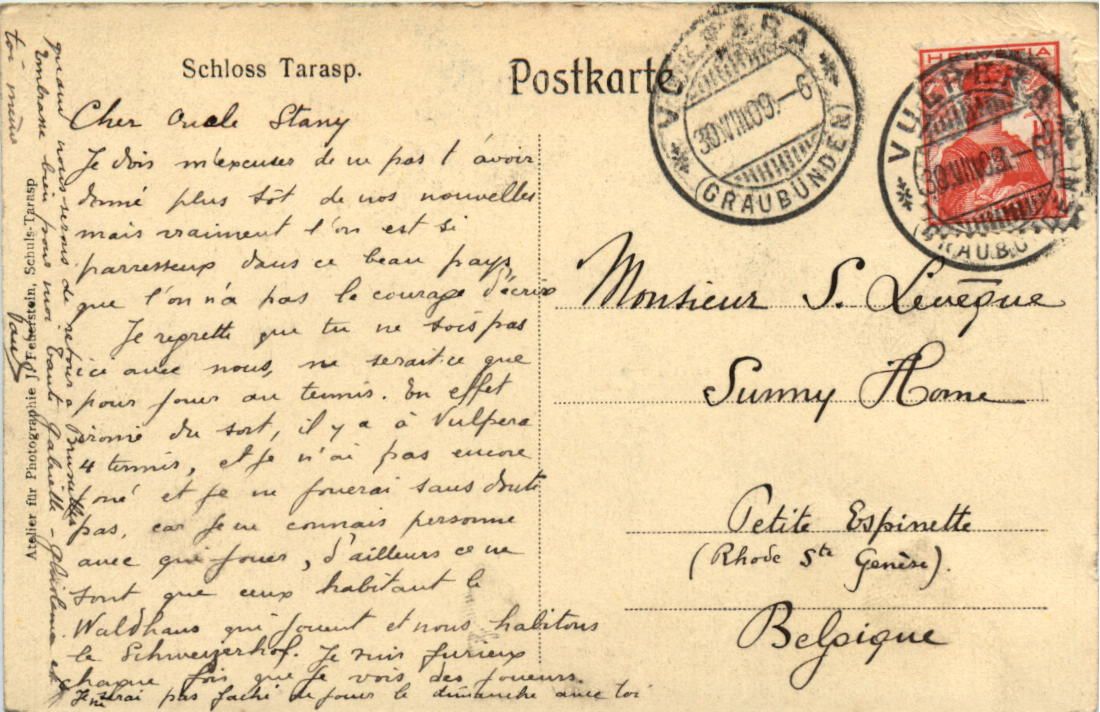 Schloss Tarasp.
Postkarte
VULPERA
30.VIII.09.-6
(GRAUBÜNDEN)
VULPERA
30.VIII.09.-6
(GRAUBÜNDEN)
HELVETIA
Cher Oncle Stany
Je dois m'excuser de ne pas t'avoir
donné plus sôt de nos nouvelles
mais vraiment l'on est si
parresseux dans ce beau pays
que l'on n'a pas le courage d'écrire
Je regrette que tu ne sois pas
ici avec nous, ne serait-ce que
pour jouer au tennis. En effet
ironie du sort, il y a à Vulpera
4 tennis, et je n'ai pas encore
joué et je ne jouerai sans doute
pas, car je ne connais personne
avec qui jouer, d'ailleurs ce ne
sont que ceux habitant le
Waldhaus qui jouent et nous habitons
le Schweizerhof. Je suis furieux
chaque fois que je vois des joueurs.
Je ne serai pas faché de jouer le dimanche avec toi
quand nous serons de retour à Bruxelles
Embrasse bien pour moi tante Gabrielle - Ghislaine et
toi même
Monsieur S. Levêque
Sunny Home
Petite Espinette
(Rhode Ste Genèse).
Belgique
Atelier für Photographie J. Feuerstein, Schuls-Tarasp